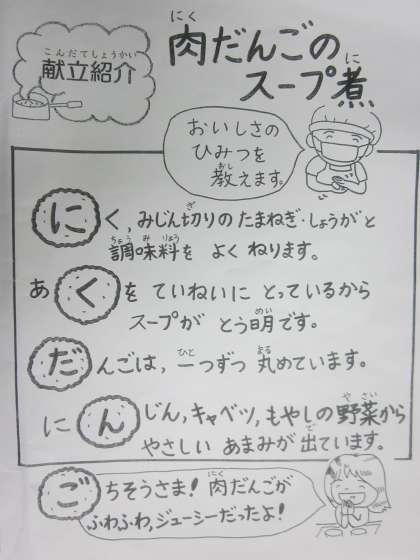 こんだてしょうかい
献立紹介
にく
肉だんごの
に
スープ煮
おいしさの
ひみつを
おし
教えます。
ぎ
にく,みじん切りの たまねぎ・しょうがと
ちょう み りょう
調味料を よく ねります。
あくを ていねいに とっているから
めい
スープが とう明です。
ひと まる
だんごは,一つずつ 丸めています。
や さい
にんじん,キャベツ,もやしの野菜から
で
やさしい あまみが 出ています。
にく
ごちそうさま! 肉だんごが
ふわふわ,ジューシーだったよ!